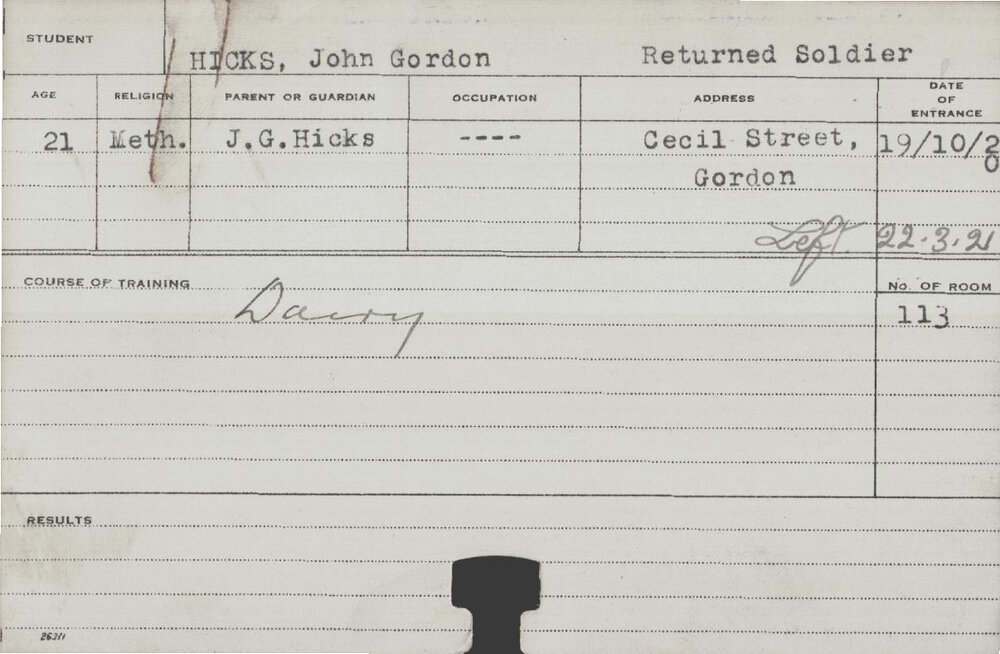 STUDENT
HICKS, John Gordon Returned Soldier
AGE RELIGION PARENT OR GUARDIAN OCCUPATION ADDRESS DATE OF ENTRANCE
21 Meth. J.G.Hicks ---- Cecil Street, 19/10/20
Gordon
Left. 22.3.21
COURSE OF TRAINING No. OF ROOM
Dairy 113
RESULTS
263/1